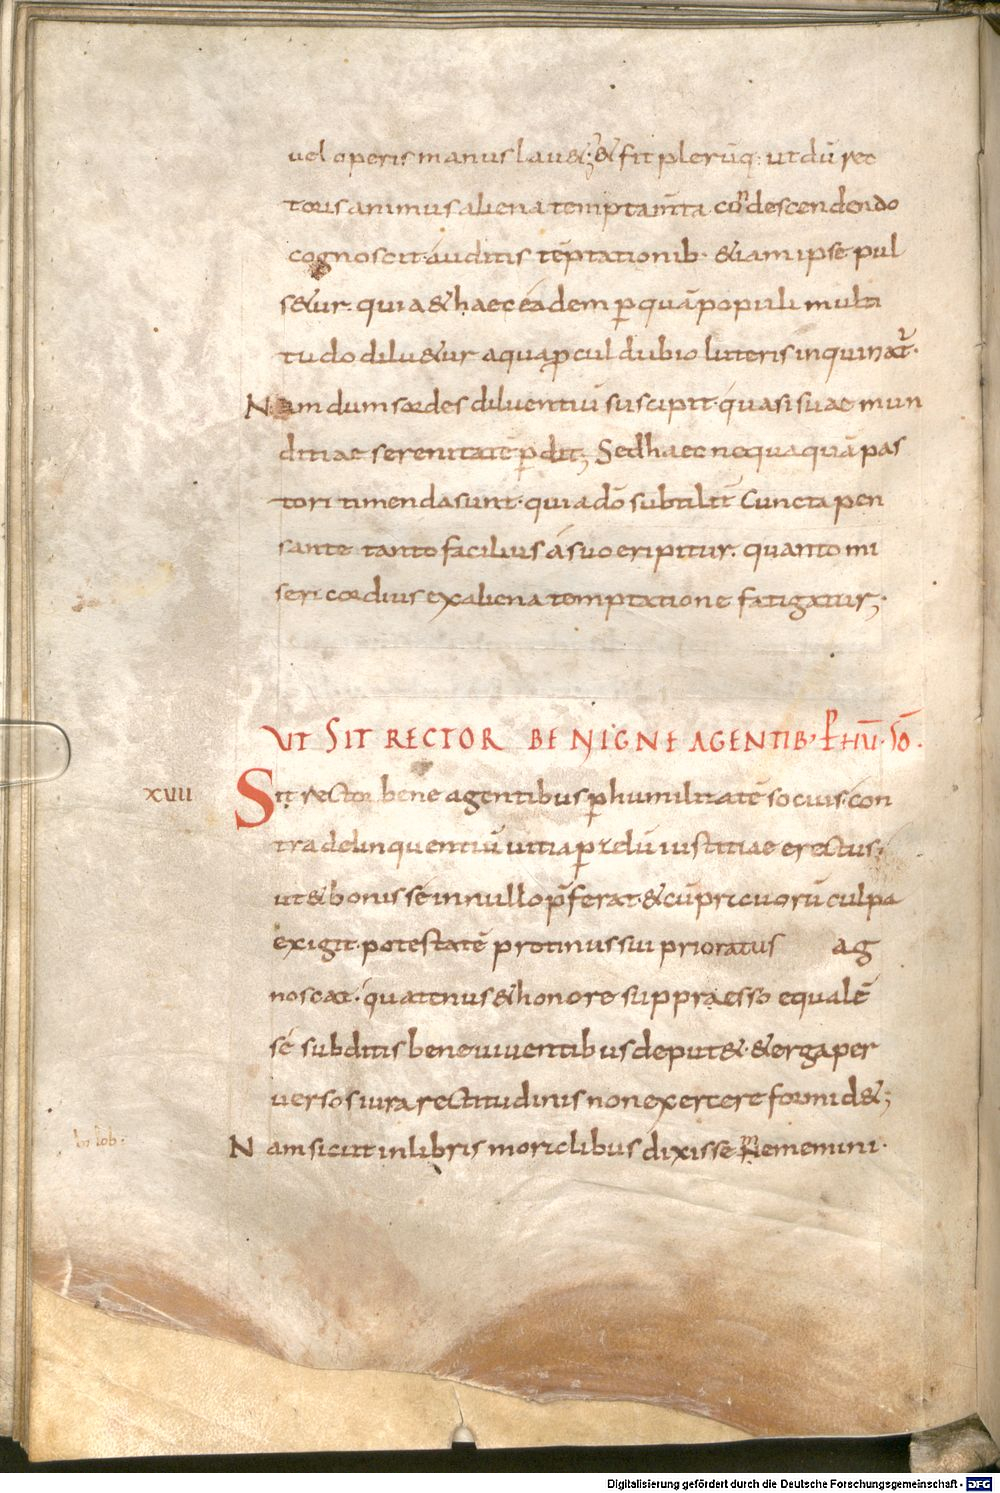 uel operis manus lau&; & fit plerūq; ut dū rec
toris animus aliena temptam̄ta con descendendo
cognoscit auditis tēptationib· &iam ipse pul
s&ur· quia & haec eadem ꝑ quā populi multi
tudo dilu&ur aqua ꝓcul dubio lutteris inquinat̄·
Nam dum sordes diluentiū suscipit· quasi suae mun
ditiae serenitatē ꝑdit; Sed haec nequaquā pas
tori timenda sunt· quia dō subtilit̄ cuncta pen
sante tanto facilius á suo eripitur· quanto mi
sericordius ex aliena temptatione fatigatur;
UT SIT RECTOR BENIGNE AGENTIB· P HŪ· SŌ·
XVII
Sit rector bene agentibus ꝑ humilitatē socius· con
tra delinquentiū uitia ꝑ zelū iustitiae erectus·
ut & bonis sé in nullo p̄ferat· & cū prauorū culpa
exigit· potestatē protinus sui prioratus ag
noscat· quatenus & honore suppraesso equalē
sé subditis bene uiuentibus deput&· & erga per
uersos iura rectitudinis non exercere formid&;
in iob·
Nam sicut in libris moralibus dixisse me memini·
Digitalisierung gefördert durch die Deutsche Forschungsgemeinschaft - DFG